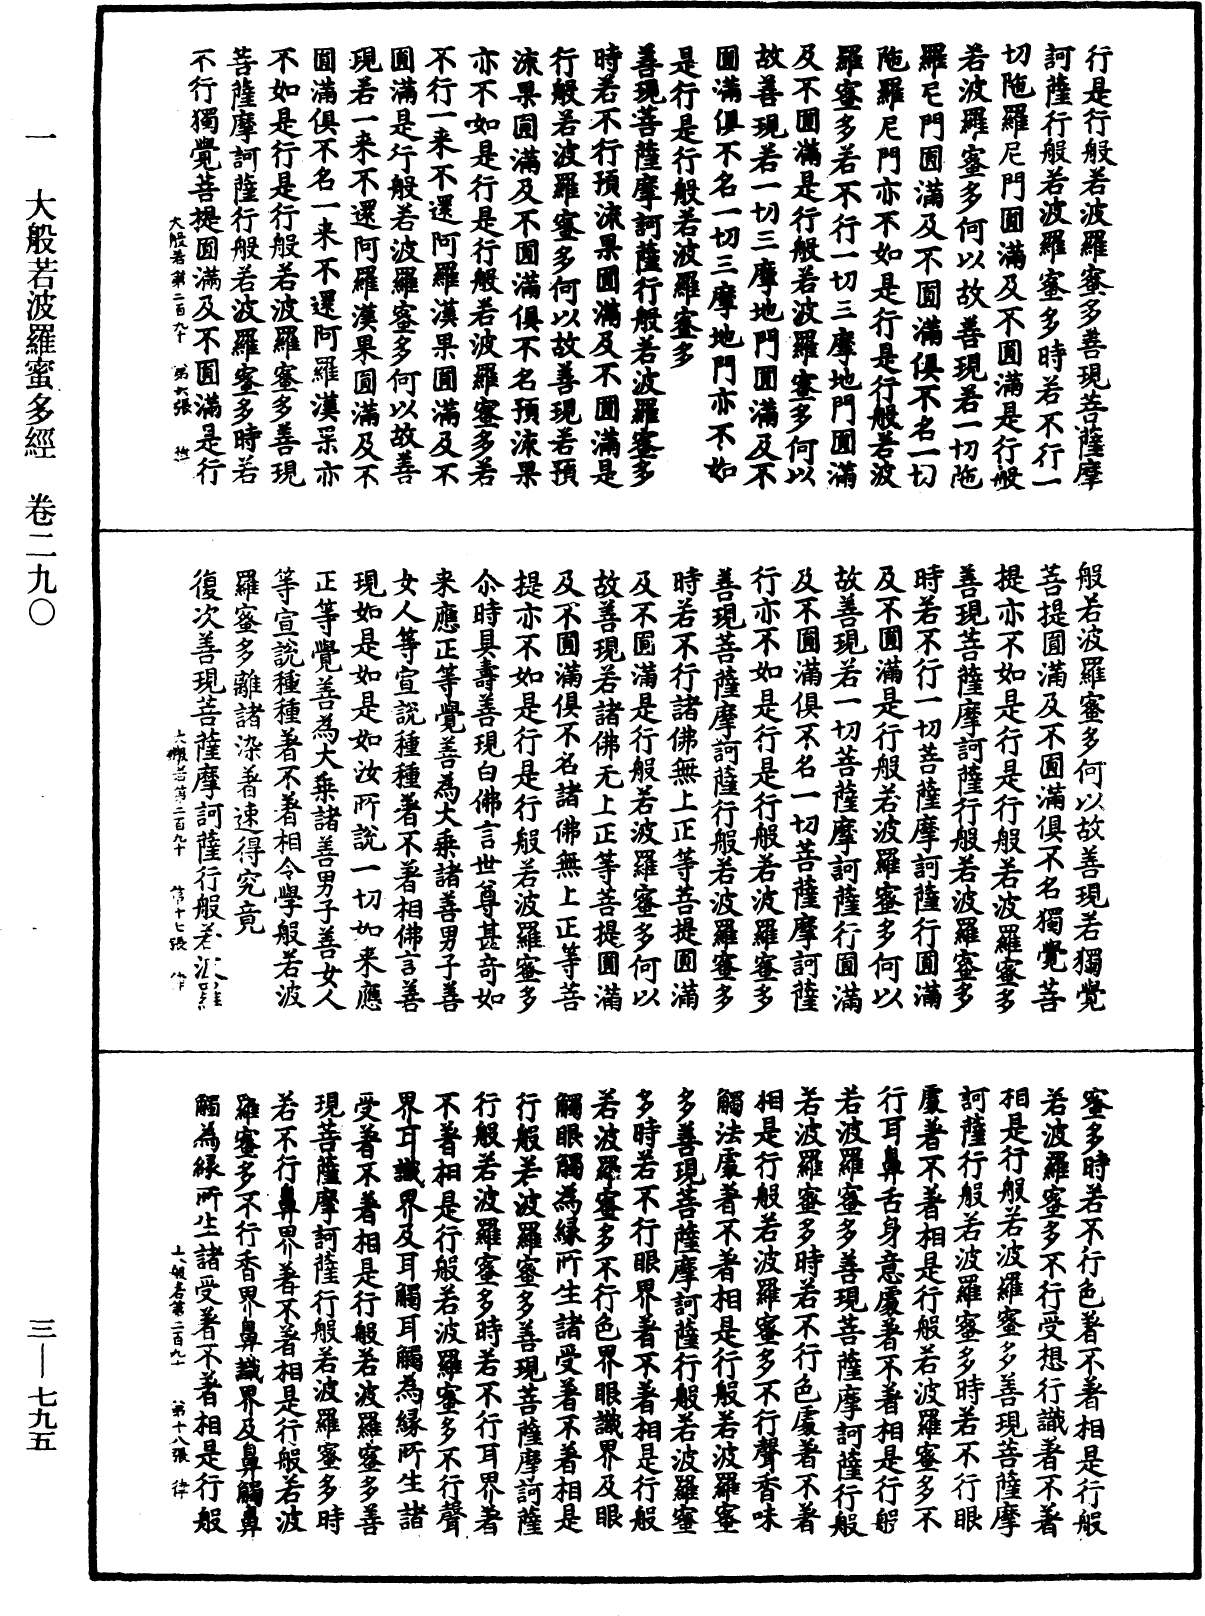 行是行般若波羅蜜多善現菩薩摩
訶薩行般若波羅蜜多時若不行一
切陁羅尼門圓滿及不圓滿是行般
若波羅蜜多何以故善現若一切陁
羅尼門圓滿及不圓滿俱不名一切
陁羅尼門亦不如是行是行般若波
羅蜜多若不行一切三摩地門圓滿
及不圓滿是行般若波羅蜜多何以
故善現若一切三摩地門圓滿及不
圓滿俱不名一切三摩地門亦不如
是行是行般若波羅蜜多
善現菩薩摩訶薩行般若波羅蜜多
時若不行預流果圓滿及不圓滿是
行般若波羅蜜多何以故善現若預
流果圓滿及不圓滿俱不名預流果
亦不如是行是行般若波羅蜜多若
不行一来不還阿羅漢果圓滿及不
圓滿是行般若波羅蜜多何以故善
現若一来不還阿羅漢果圓滿及不
圓滿俱不名一来不還阿羅漢果亦
不如是行是行般若波羅蜜多善現
菩薩摩訶薩行般若波羅蜜多時若
不行獨覺菩提圓滿及不圓滿是行
大般若第二百九十 第六張
般若波羅蜜多何以故善現若獨覺
菩提圓滿及不圓滿俱不名獨覺菩
提亦不如是行是行般若波羅蜜多
善現菩薩摩訶薩行般若波羅蜜多
時若不行一切菩薩摩訶薩行圓滿
及不圓滿是行般若波羅蜜多何以
故善現若一切菩薩摩訶薩行圓滿
及不圓滿俱不名一切菩薩摩訶薩
行亦不如是行是行般若波羅蜜多
善現菩薩摩訶薩行般若波羅蜜多
時若不行諸佛無上正等菩提圓滿
及不圓滿是行般若波羅蜜多何以
故善現若諸佛无上正等菩提圓滿
及不圓滿俱不名諸佛無上正等菩
提亦不如是行是行般若波羅蜜多
尒時具壽善現白佛言世尊甚奇如
来應正等覺善為大乗諸善男子善
女人等宣說種種著不著相佛言善
現如是如是如汝所說一切如来應
正等覺善為大乗諸善男子善女人
等宣說種種著不著相令學般若波
羅蜜多離諸染著速得究竟
復次善現菩薩摩訶薩行般若波羅
大般若第二百九十 第十七張
蜜多時若不行色著不著相是行般
若波羅蜜多不行受想行識著不著
相是行般若波羅蜜多善現菩薩摩
訶薩行般若波羅蜜多時若不行眼
處著不著相是行般若波羅蜜多不
行耳鼻舌身意處著不著相是行般
若波羅蜜多善現菩薩摩訶薩行般
若波羅蜜多時若不行色處著不著
相是行般若波羅蜜多不行聲香味
觸法處著不著相是行般若波羅蜜
多善現菩薩摩訶薩行般若波羅蜜
多時若不行眼界著不著相是行般
若波羅蜜多不行色界眼識界及眼
觸眼觸為緣所生諸受著不著相是
行般若波羅蜜多善現菩薩摩訶薩
行般若波羅蜜多時若不行耳界著
不著相是行般若波羅蜜多不行聲
界耳識界及耳觸耳觸為緣所生諸
受著不著相是行般若波羅蜜多善
現菩薩摩訶薩行般若波羅蜜多時
若不行鼻界著不著相是行般若波
羅蜜多不行香界鼻識界及鼻觸鼻
觸為緣所生諸受著不著相是行般
大般若第二百九十 第十八張
一 大般若波羅蜜多經 卷二九〇
三—七九五